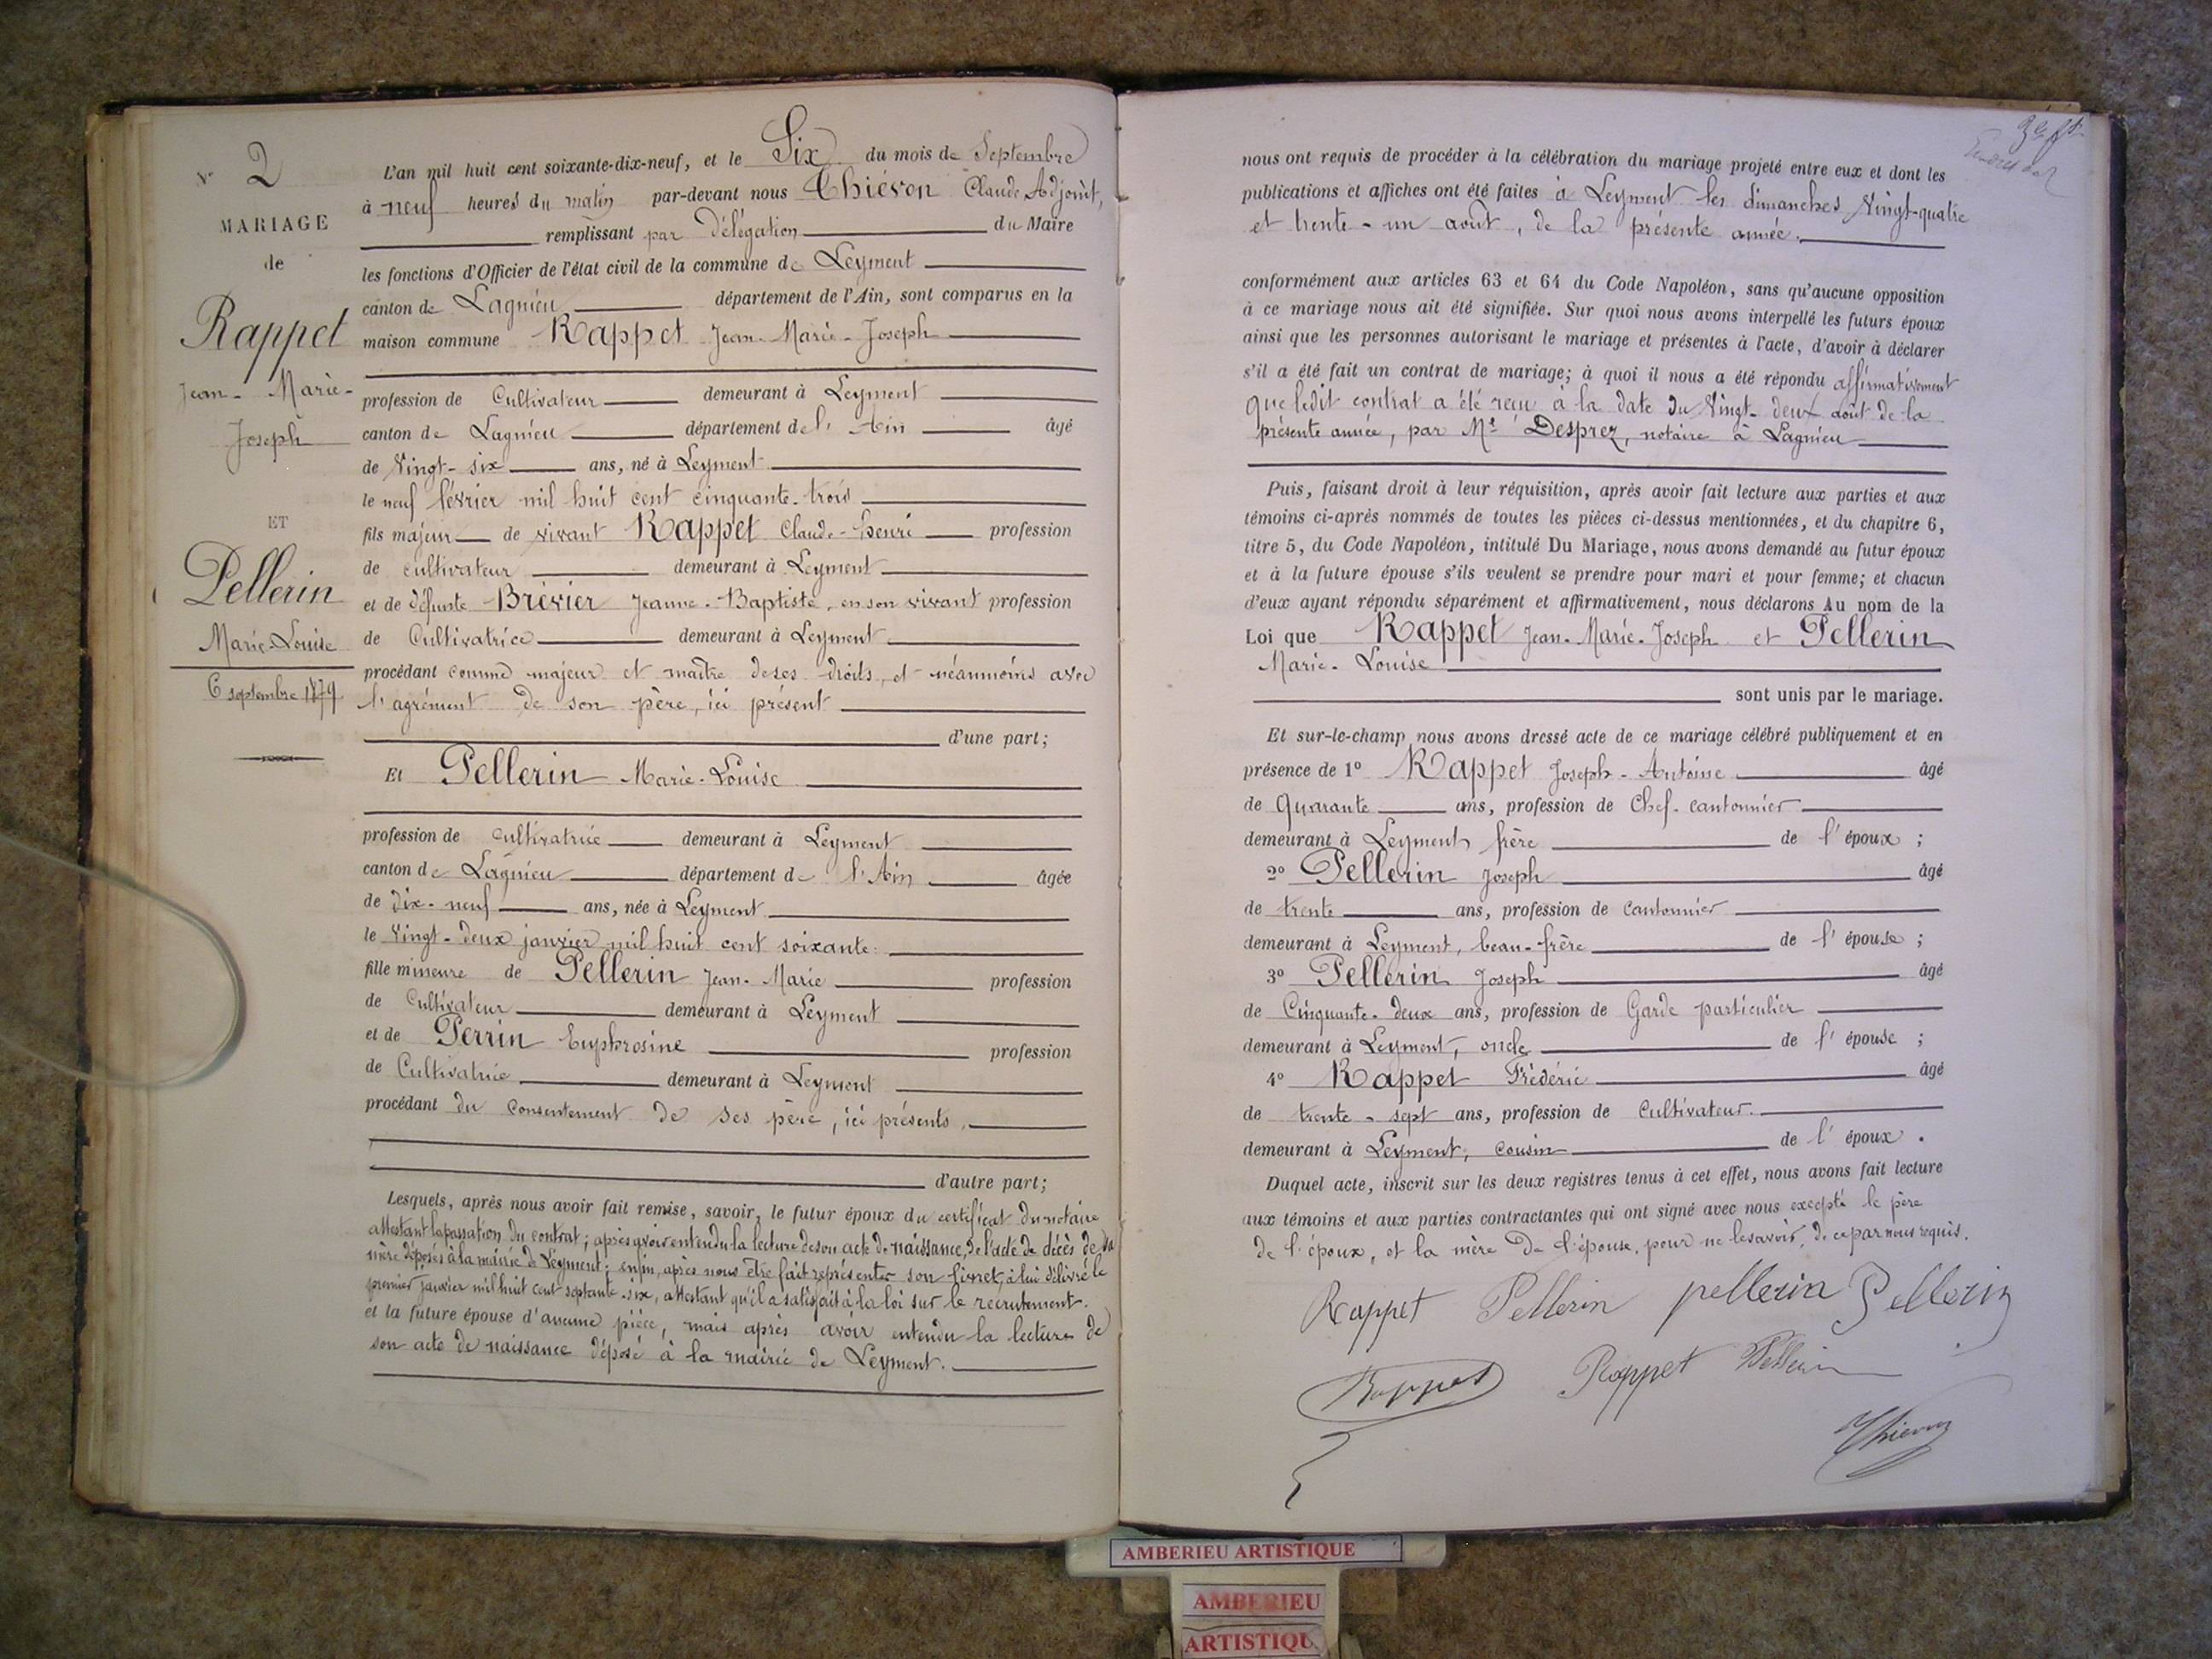 N° 2
MARIAGE
de
Rappet
Jean-Marie-
Joseph
ET
Pellerin
Marie-Louise
6 septembre 1879
L'an mil huit cent soixante-dix-neuf, et le Six du mois de Septembre
à neuf heures du matin par-devant nous Thiévon Claude Adjoint,
remplissant par Délégation du Maire
les fonctions d'Officier de l'état civil de la commune de Leyment
canton de Lagnieu département de l'Ain, sont comparus en la
maison commune Rappet Jean-Marie-Joseph
profession de Cultivateur demeurant à Leyment
canton de Lagnieu département de l'Ain âgé
de Vingt-six ans, né à Leyment
le neuf février mil huit cent cinquante-trois
fils majeur de vivant Rappet Claude-henri profession
de cultivateur demeurant à Leyment
et de défunte Brévier Jeanne-Baptiste, en son vivant profession
de Cultivatrice demeurant à Leyment
procédant comme majeur et maître de ses droits, et néanmoins avec
l'agrément de son père, ici présent
d'une part;
Et Pellerin Marie-Louise
profession de cultivatrice demeurant à Leyment
canton de Lagnieu département de l'Ain âgée
de dix-neuf ans, née à Leyment
le Vingt-deux janvier mil huit cent soixante.
fille mineure de Pellerin Jean-Marie profession
de Cultivateur demeurant à Leyment
et de Perrin Euphrosine profession
de Cultivatrice demeurant à Leyment
procédant du consentement de ses père, ici présents,
d'autre part;
Lesquels, après nous avoir fait remise, savoir, le futur époux du certificat du notaire
attestant la passation du contrat; après avoir entendu la lecture de son acte de naissance, de l'acte de décès de sa
mère déposés à la mairie de Leyment; enfin, après nous être fait représenter son livret, à lui délivré le
premier janvier mil huit cent septante-six, attestant qu'il a satisfait à la loi sur le recrutement.
et la future épouse d'aucune pièce, mais après avoir entendu la lecture de
son acte de naissance déposé à la mairie de Leyment.
nous ont requis de procéder à la célébration du mariage projeté entre eux et dont les
publications et affiches ont été faites à Leyment les dimanches Vingt-quatre
et trente-un août, de la présente année.
conformément aux articles 63 et 64 du Code Napoléon, sans qu'aucune opposition
à ce mariage nous ait été signifiée. Sur quoi nous avons interpellé les futurs époux
ainsi que les personnes autorisant le mariage et présentes à l'acte, d'avoir à déclarer
s'il a été fait un contrat de mariage; à quoi il nous a été répondu affirmativement
que ledit contrat a été reçu à la date du Vingt-deux août de la
présente année, par Me Desprez, notaire à Lagnieu
Puis, faisant droit à leur réquisition, après avoir fait lecture aux parties et aux
témoins ci-après nommés de toutes les pièces ci-dessus mentionnées, et du chapitre 6,
titre 5, du Code Napoléon, intitulé Du Mariage, nous avons demandé au futur époux
et à la future épouse s'ils veulent se prendre pour mari et pour femme; et chacun
d'eux ayant répondu séparément et affirmativement, nous déclarons Au nom de la
Loi que Rappet Jean-Marie-Joseph et Pellerin
Marie-Louise
sont unis par le mariage.
Et sur-le-champ nous avons dressé acte de ce mariage célébré publiquement et en
présence de 1° Rappet Joseph-Antoine âgé
de Quarante ans, profession de Chef-cantonnier
demeurant à Leyment, frère de l'époux;
2° Pellerin Joseph âgé
de trente ans, profession de cantonnier
demeurant à Leyment, beau-frère de l'épouse;
3° Pellerin Joseph âgé
de Cinquante-deux ans, profession de Garde particulier
demeurant à Leyment, oncle de l'épouse;
4° Rappet Frédéric âgé
de trente-sept ans, profession de cultivateur.
demeurant à Leyment, cousin de l'époux.
Duquel acte, inscrit sur les deux registres tenus à cet effet, nous avons fait lecture
aux témoins et aux parties contractantes qui ont signé avec nous excepté le père
de l'époux, et la mère de l'épouse, pour ne le savoir, de ce par nous requis.
Rappet Pellerin pellerin Pellerin
Rappet Rappet Pellerin
Thievon
AMBERIEU ARTISTIQUE
AMBERIEU
ARTISTIQU